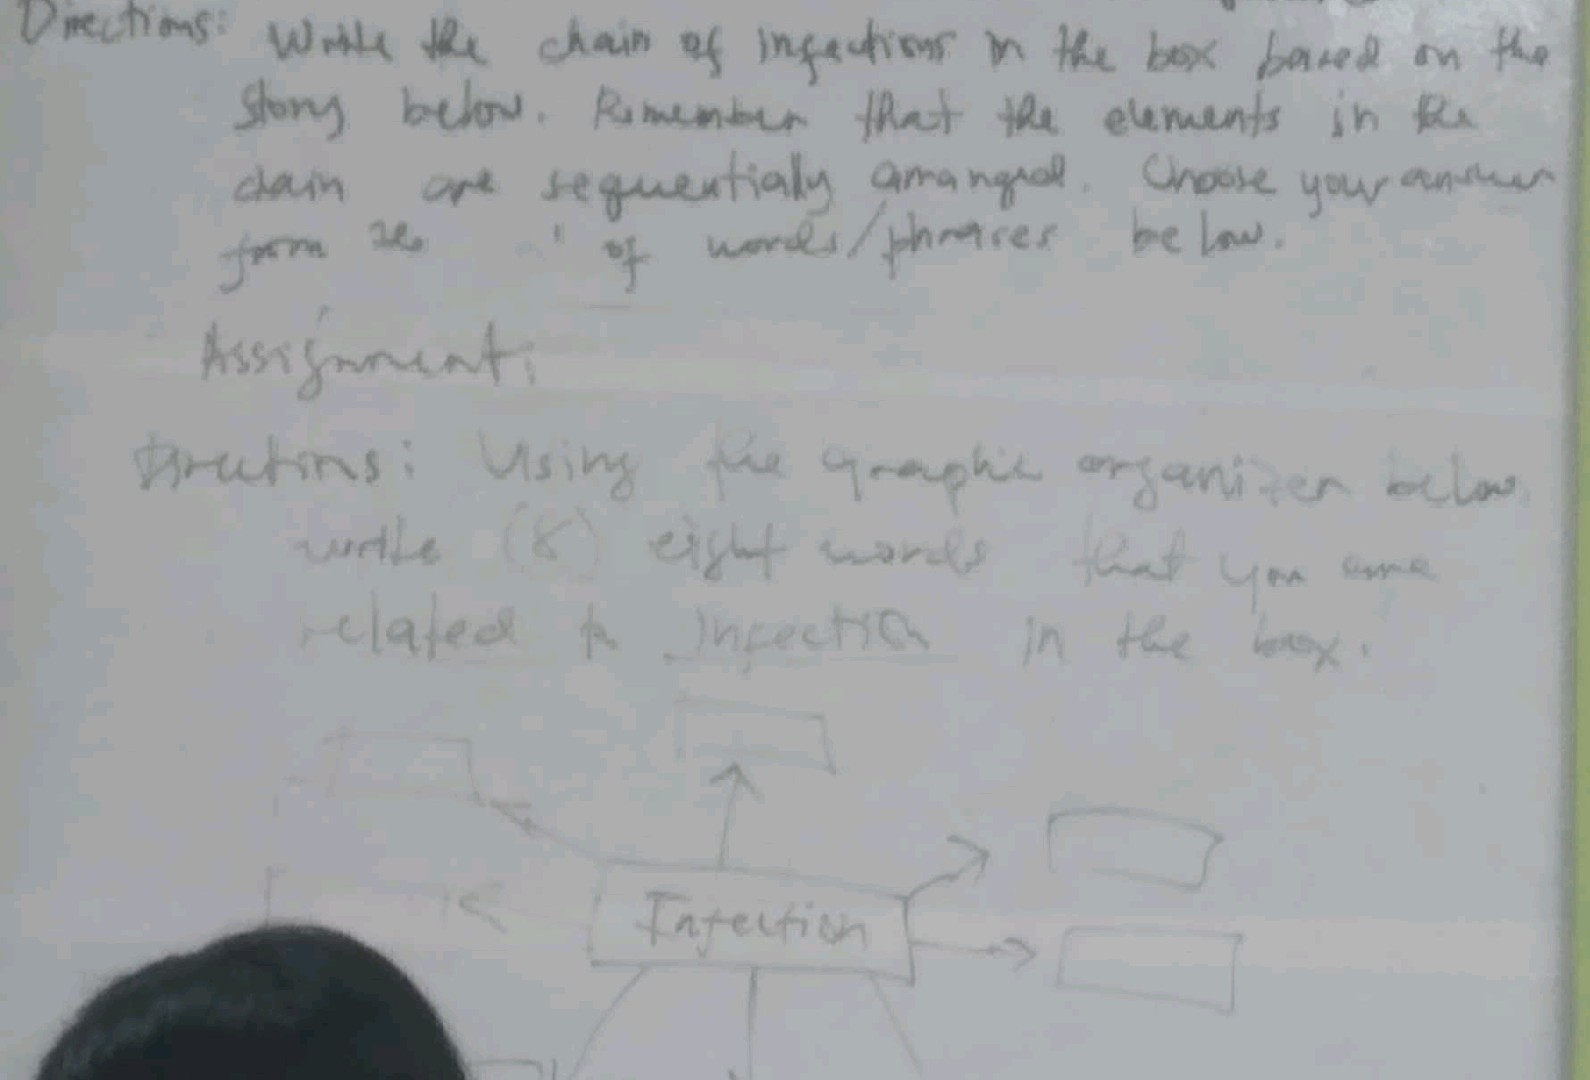 Directions: Write the chain of infections in the box based on the
story below. Remember that the elements in the
chain are sequentially arranged. Choose your answer
from the of words/phrases below.
Assignment:
Directions: Using the graphic organizer below
write (8) eight words that you are
related to infection in the box.
Infection